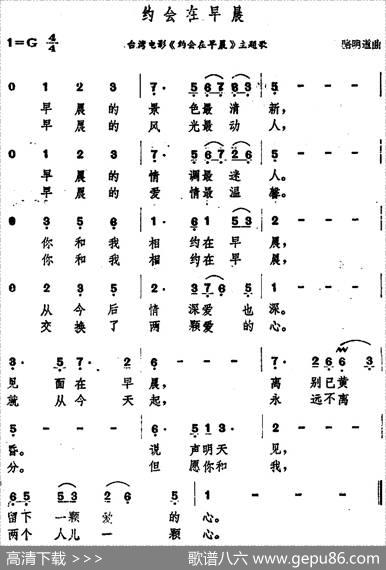 约会在早晨
1=G 4/4 台湾电影《约会在早晨》主题歌 骆明道曲
0 1 2 3 | 7· 5 6 7 6 3 | 5 - - - |
早晨的景色最清新，
早晨的风光最动人，
0 1 2 3 | 7· 5 6 7 2 6 | 5 - - - |
早晨的情调最迷人。
早晨的爱情最温馨。
0 3 5 6 | 1· 6 1 5 3 | 2 - - - |
你和我相约在早晨，
你和我相约在早晨，
0 2 3 5 | 2· 3 7 6 1 | 5 - - - |
从今后情深爱也深。
交换了两颗爱的心。
3· 5 7· 2 | 6 - - - | 7· 2 6 6 3 |
见面在早晨，离别已黄
就从今天起，永远不离
5 - - - | 6· 5 1 3· | 2 - - - |
昏。说声明天见，
分。但愿你和我，
6 5 5 3 2 6 5 | 1 - - - |
留下一颗爱的心。
两个人儿一颗心。
高清下载 >>> 歌谱八六 www.gepu86.com